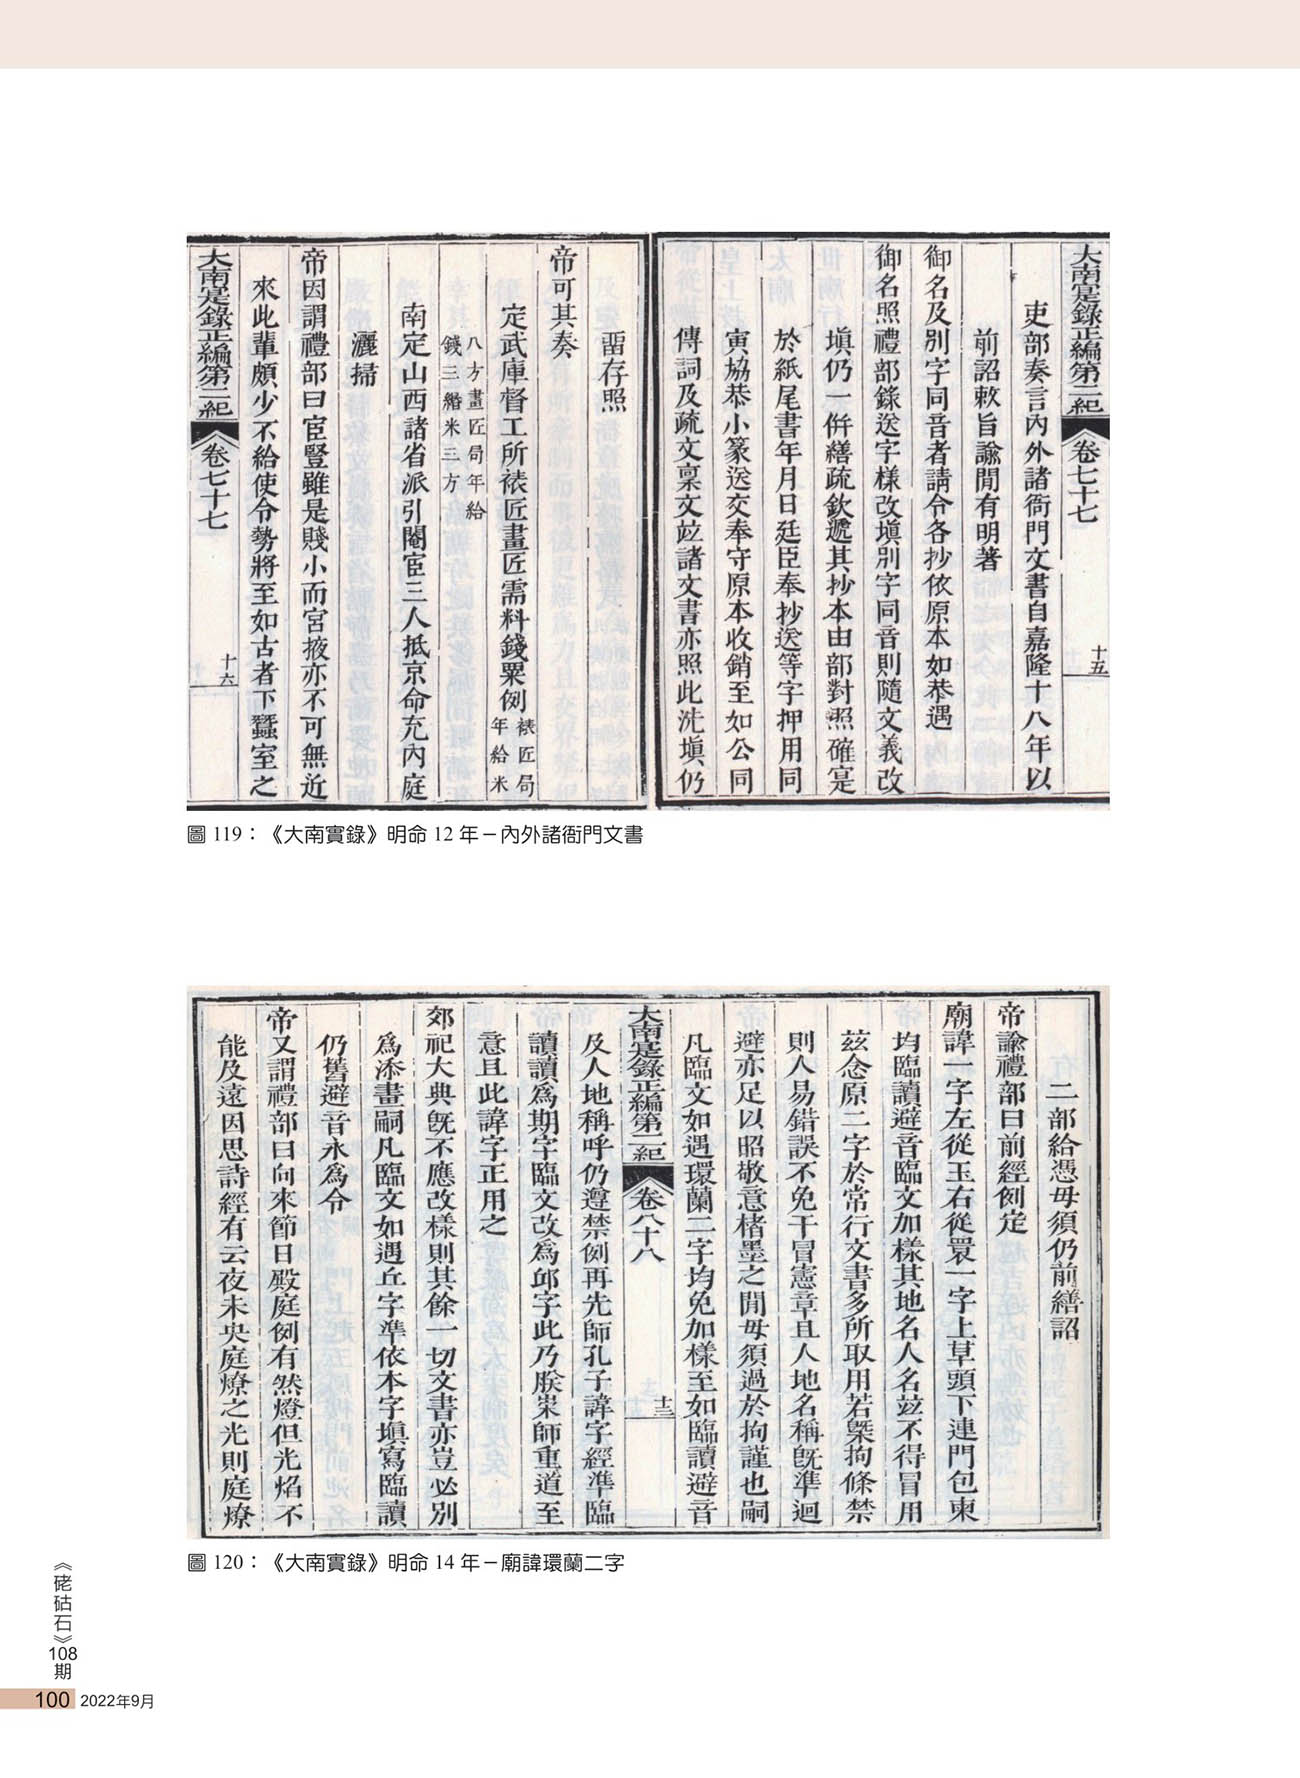 大南寔錄正編第二紀 卷七十七 十五
吏部奏言內外諸衙門文書自嘉隆十八年以
前詔敕旨諭間有明著
御名及別字同音者請令各抄依原本如恭遇
御名照禮部錄送字樣改塡別字同音則隨文義改
塡仍一倂繕疏欽遞其抄本由部對照確寔
於紙尾書年月日廷臣奉抄送等字押用同
寅協恭小篆送交奉守原本收銷至如公同
傳詞及疏文稟文竝諸文書亦照此洗塡仍
畱存照
帝可其奏
定武庫督工所裱匠畫匠需料錢粟例 裱匠局年給米
八方畫匠局年給錢三緡米三方
南定山西諸省派引閹宦三人抵京命充內庭
灑掃
帝因謂禮部曰宦豎雖是賤小而宮掖亦不可無近
來此輩頗少不給使令勢將至如古者下蠶室之
大南寔錄正編第二紀 卷七十七 十六
圖 119：《大南實錄》明命 12 年－內外諸衙門文書
二部給憑毋須仍前繕詔
帝諭禮部曰前經例定
廟諱一字左從玉右從睘一字上草頭下連門包柬
均臨讀避音臨文加樣其地名人名竝不得冒用
茲念原二字於常行文書多所取用若槩拘條禁
則人易錯誤不免干冒憲章且人地名稱旣準迴
避亦足以昭敬意楮墨之間毋須過於拘謹也嗣
凡臨文如遇環蘭二字均免加樣至如臨讀避音
大南寔錄正編第二紀 卷八十八 十三
及人地稱呼仍遵禁例再先師孔子諱字經準臨
讀讀爲期字臨文改爲邱字此乃朕崇師重道至
意且此諱字正用之
郊祀大典旣不應改樣則其餘一切文書亦豈必別
爲添畫嗣凡臨文如遇丘字準依本字塡寫臨讀
仍舊避音永爲令
帝又謂禮部曰向來節日殿庭例有然燈但光焰不
能及遠因思詩經有云夜未央庭燎之光則庭燎
圖 120：《大南實錄》明命 14 年－廟諱環蘭二字
《硓𥑮石》108期
100 2022年9月